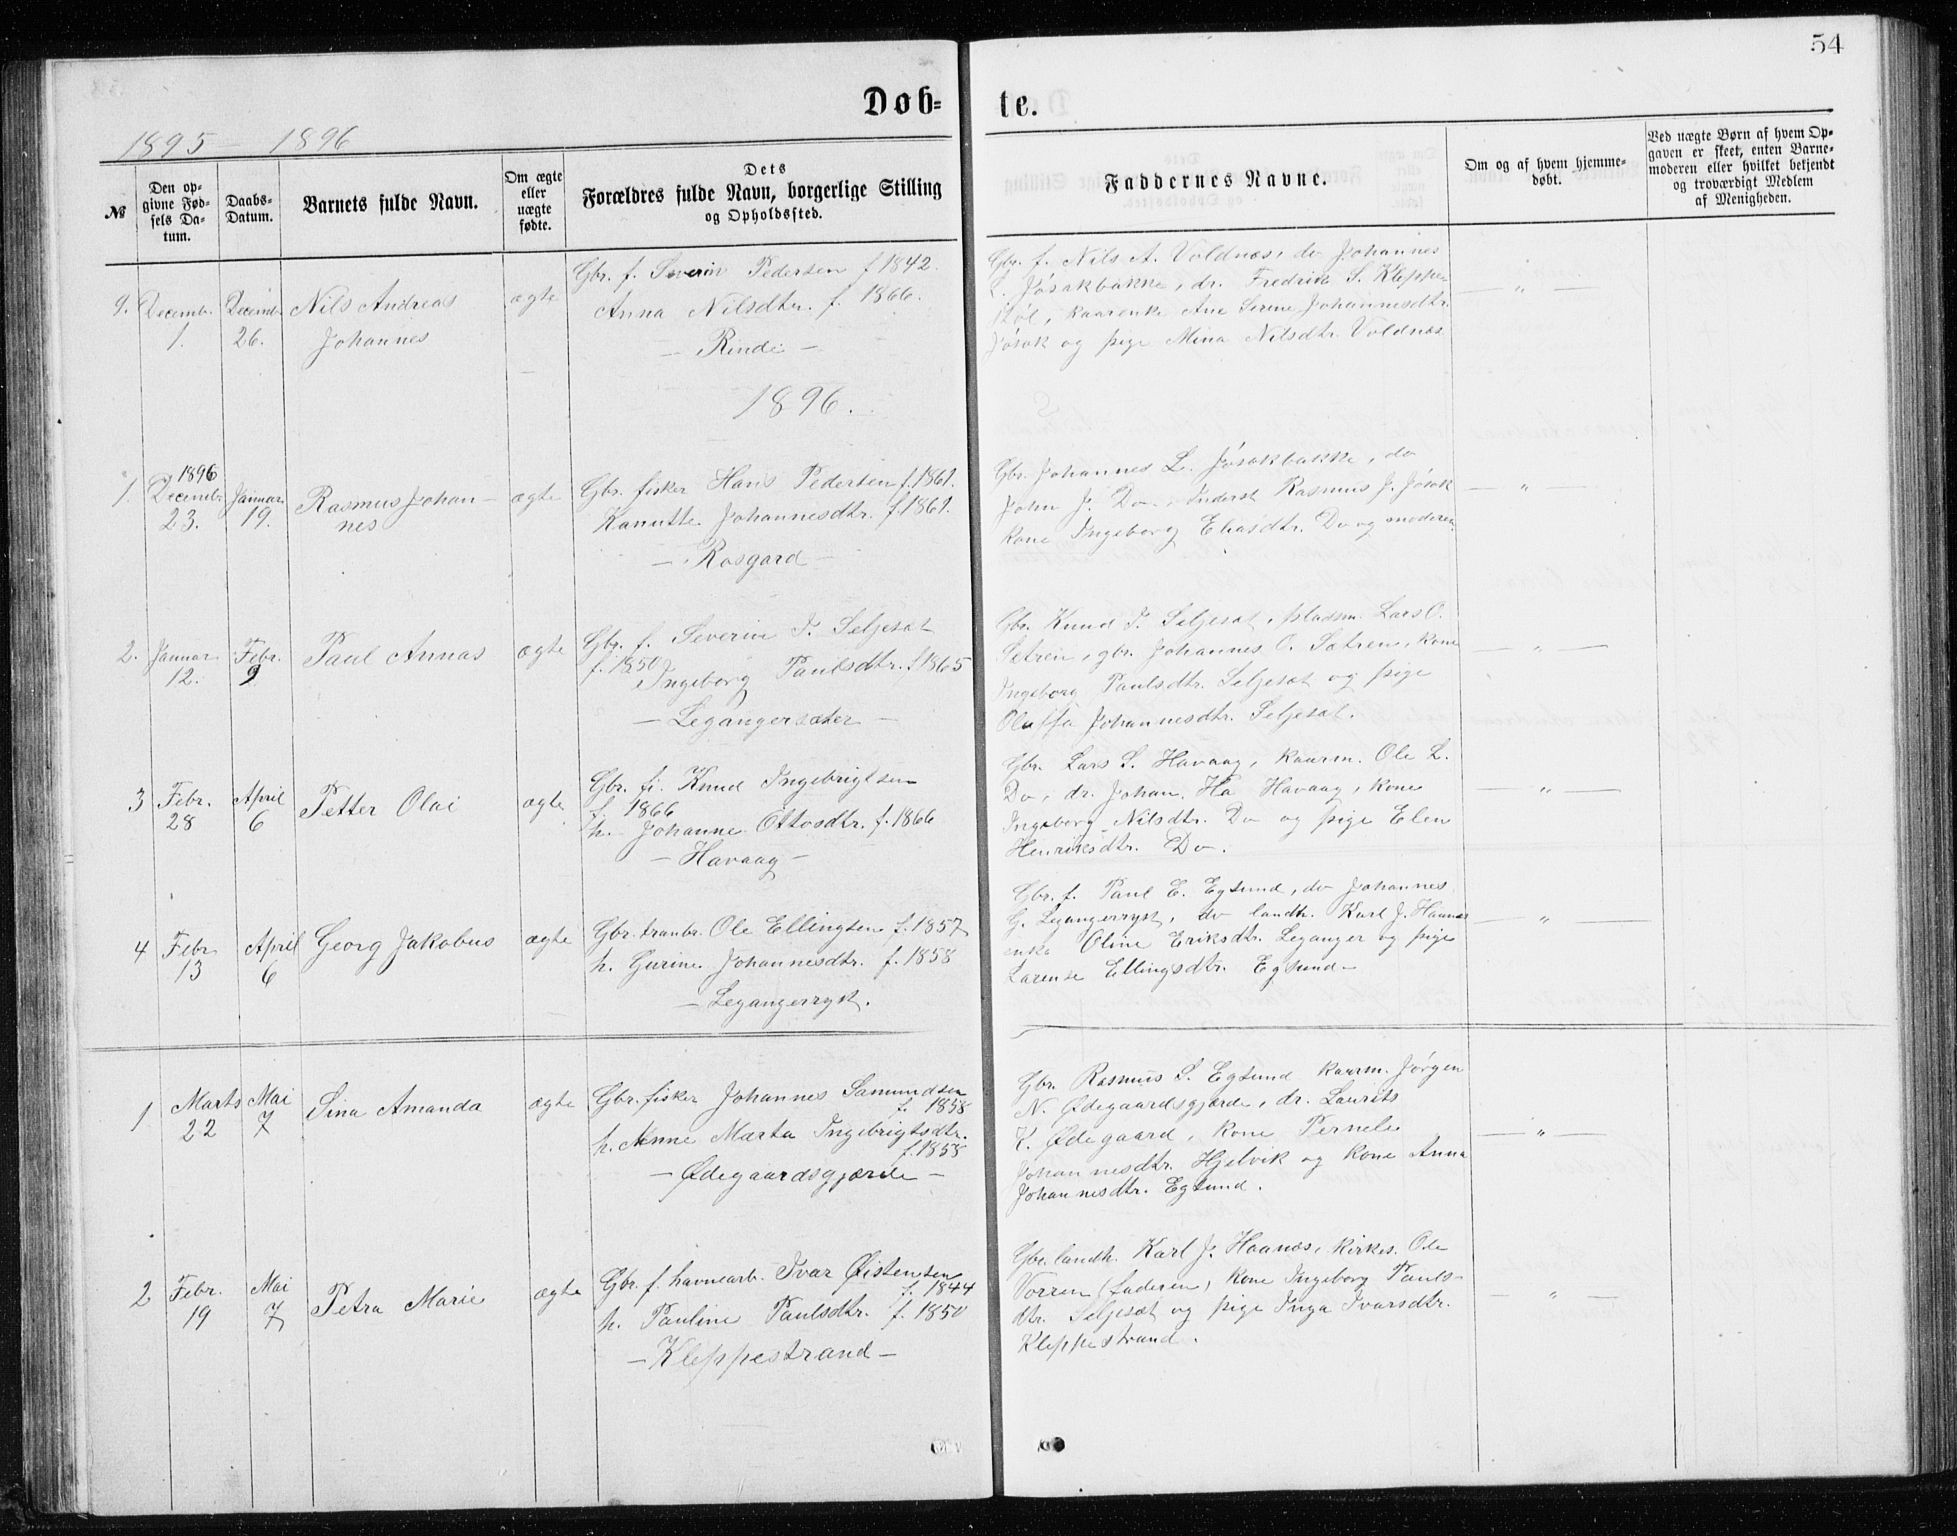 54
Døb-
te.
1895 - 1896
№
Den op-
givne Fød-
sels Da-
tum.
Daabs-
Datum.
Barnets fulde Navn.
Om ægte
eller
uægte
fødte.
Dets
Forældres fulde Navn, borgerlige Stilling
og Opholdssted.
Faddernes Navne.
Om og af hvem hjemme-
døbt.
Ved uægte Børn af hvem Op-
gaven er skeet, enten Barne-
moderen eller hvilket bekjendt
og troværdigt Medlem
af Menigheden.
9.
Decemb.
1.
Decemb.
26.
Nils Andreas
Johannes
ægte
Gbr. f. Severin Pedersen f. 1842.
Anna Nilsdtr. f. 1866.
- Rinde -
Gbr. f. Nils A. Voldnæs, do Johannes
L. Jøsokbakke, dr. Fredrik S. Kleppe-
støl, kaarenke Ane Serine Johannesdtr.
Jøsok og pige Mina Nilsdtr. Voldnæs
— " —
1896.
1.
1896
Decembr.
23.
Januar
19.
Rasmus Johan-
nes
ægte
Gbr. fisker Hans Pedersen f. 1861.
Kanutte Johannesdtr. f. 1861.
- Rosgard -
Gbr. Johannes L. Jøsokbakke, do
John J. Do. Inderst Rasmus J. Jøsok
kone Ingeborg Eliasdtr. Do og moderen
— " —
2.
Januar
12.
Febr.
9
Paul Annas
ægte
Gbr. f. Severin J. Seljesæt
f. 1850
Ingeborg Paulsdtr. f. 1865
- Legangersæter -
Gbr. Knud J. Seljesæt, pladsm. Lars O.
Sætren, gbr. Johannes O. Sætren, kone
Ingeborg Paulsdtr. Seljesæt og pige
Oluffa Johannesdtr. Seljesæt.
— " —
3
Febr.
28
April
6
Petter Olai
ægte
Gbr. fi. Knud Ingebrigtsen
f. 1866
h. Johanne Ottosdtr. f. 1866
- Havaag -
Gbr. Lars L. Havaag, kaarm. Ole L.
Do, dr. Johan. Ha Havaag, kone
Ingeborg Nilsdtr. Do og pige Elen
Henriksdtr. Do.
— " —
4
Febr
13
April
6
Georg Jakobus
ægte
Gbr. tranbr. Ole Ellingsen f. 1857
h. Gurine Johannesdtr. f. 1858
- Legangerryst.
Gbr. f. Paul E. Egsund, do Johannes
G. Legangerryst, do landh. Karl J. Haanæs
enke Oline Eriksdtr. Leganger og pige
Larense Ellingsdtr. Egsund -
— " —
1
Marts
22
Mai
7
Sina Amanda
ægte
Gbr. fisker Johannes Samundsen
f. 1858
h. Anne Marta Ingebrigtsdtr.
f. 1858
- Ødegaardsgjærde -
Gbr. Rasmus S. Egsund kaarm. Jørgen
N. Ødegaardsgjærde, dr. Laurits
K. Ødegaard, kone Pernele
Johannesdtr. Hjelvik og kone Anna
Johannesdtr. Egsund.
— " —
2
Febr.
19
Mai
7
Petra Marie
ægte
Gbr. f. havnearb. Ivar Øistensen
f. 1844
h. Pauline Paulsdtr. f. 1850
- Kleppestrand -
Gbr. landh. Karl J. Haanæs, kirkes. Ole
Vorren (faderen) kone Ingeborg Pauls-
dtr. Seljesæt og pige Inga Ivarsdtr.
Kleppestrand.
— " —